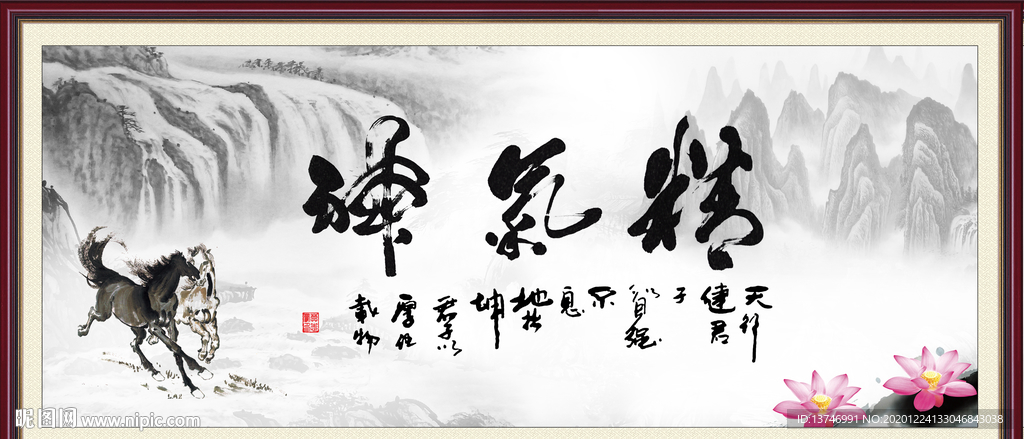 精氣神
天行
健君
子
以自强
不
息
地势
坤
君子以
厚德
載物
昵图网 www.nipic.com
ID:13746991 NO:20201224133046843038